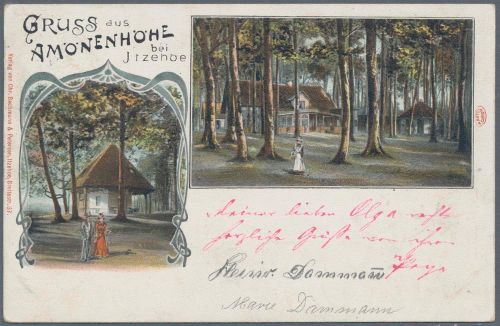 GRUSS aus
AMÖNENHÖHE
bei
Itzehoe
Verlag von Chr. Bachmann & Petersen, Itzehoe, Breitestr. 37.
Meiner lieben Olga
herzliche Grüße von ihrer
Heinr. Dammann
Marie Dammann